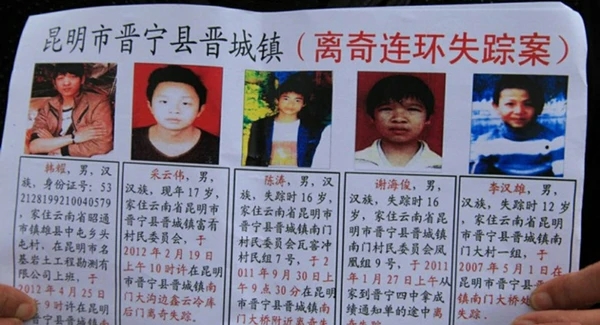 昆明市晋宁县晋城镇（离奇连环失踪案）
韩耀，男，汉
族，身份证号：53
2128199210040579
，家住云南省昭通
市镇雄县中屯乡头
屯村，在昆明市名
基岩土工程勘测有
限公司上班，于
2012年4月25日
9时许在昆明
采云伟，男，
汉族，现年17岁，
家住云南省昆明市
晋宁县晋城镇富有
村民委员会，于
2012年2月19日
上午10时许在昆
明市晋宁县晋城镇南
门大沟边鑫云冷库
后门离奇失踪。
陈涛，男，汉
族，失踪时16岁，
家住云南省昆明市
晋宁县晋城镇南门
村民委员会瓦窑冲
村民组7号，于2
011年9月30日上午
9点30分在昆明
市晋宁县晋城镇南
门大桥附近离奇失
谢海俊，男，
汉族，失踪时16岁
，家住云南省昆明
市晋宁县晋城镇南
门村民委员会凤
凰组9号，于2011
年1月27日上午从
家到晋宁四中拿成
绩通知单的途中离
奇失踪。
李汉雄，男，
汉族，失踪时12岁
，家住云南省昆明
市晋宁县晋城镇南
门大村一组，于
2007年5月1日在
昆明市晋宁县晋城镇
南门大桥处
离奇失踪。